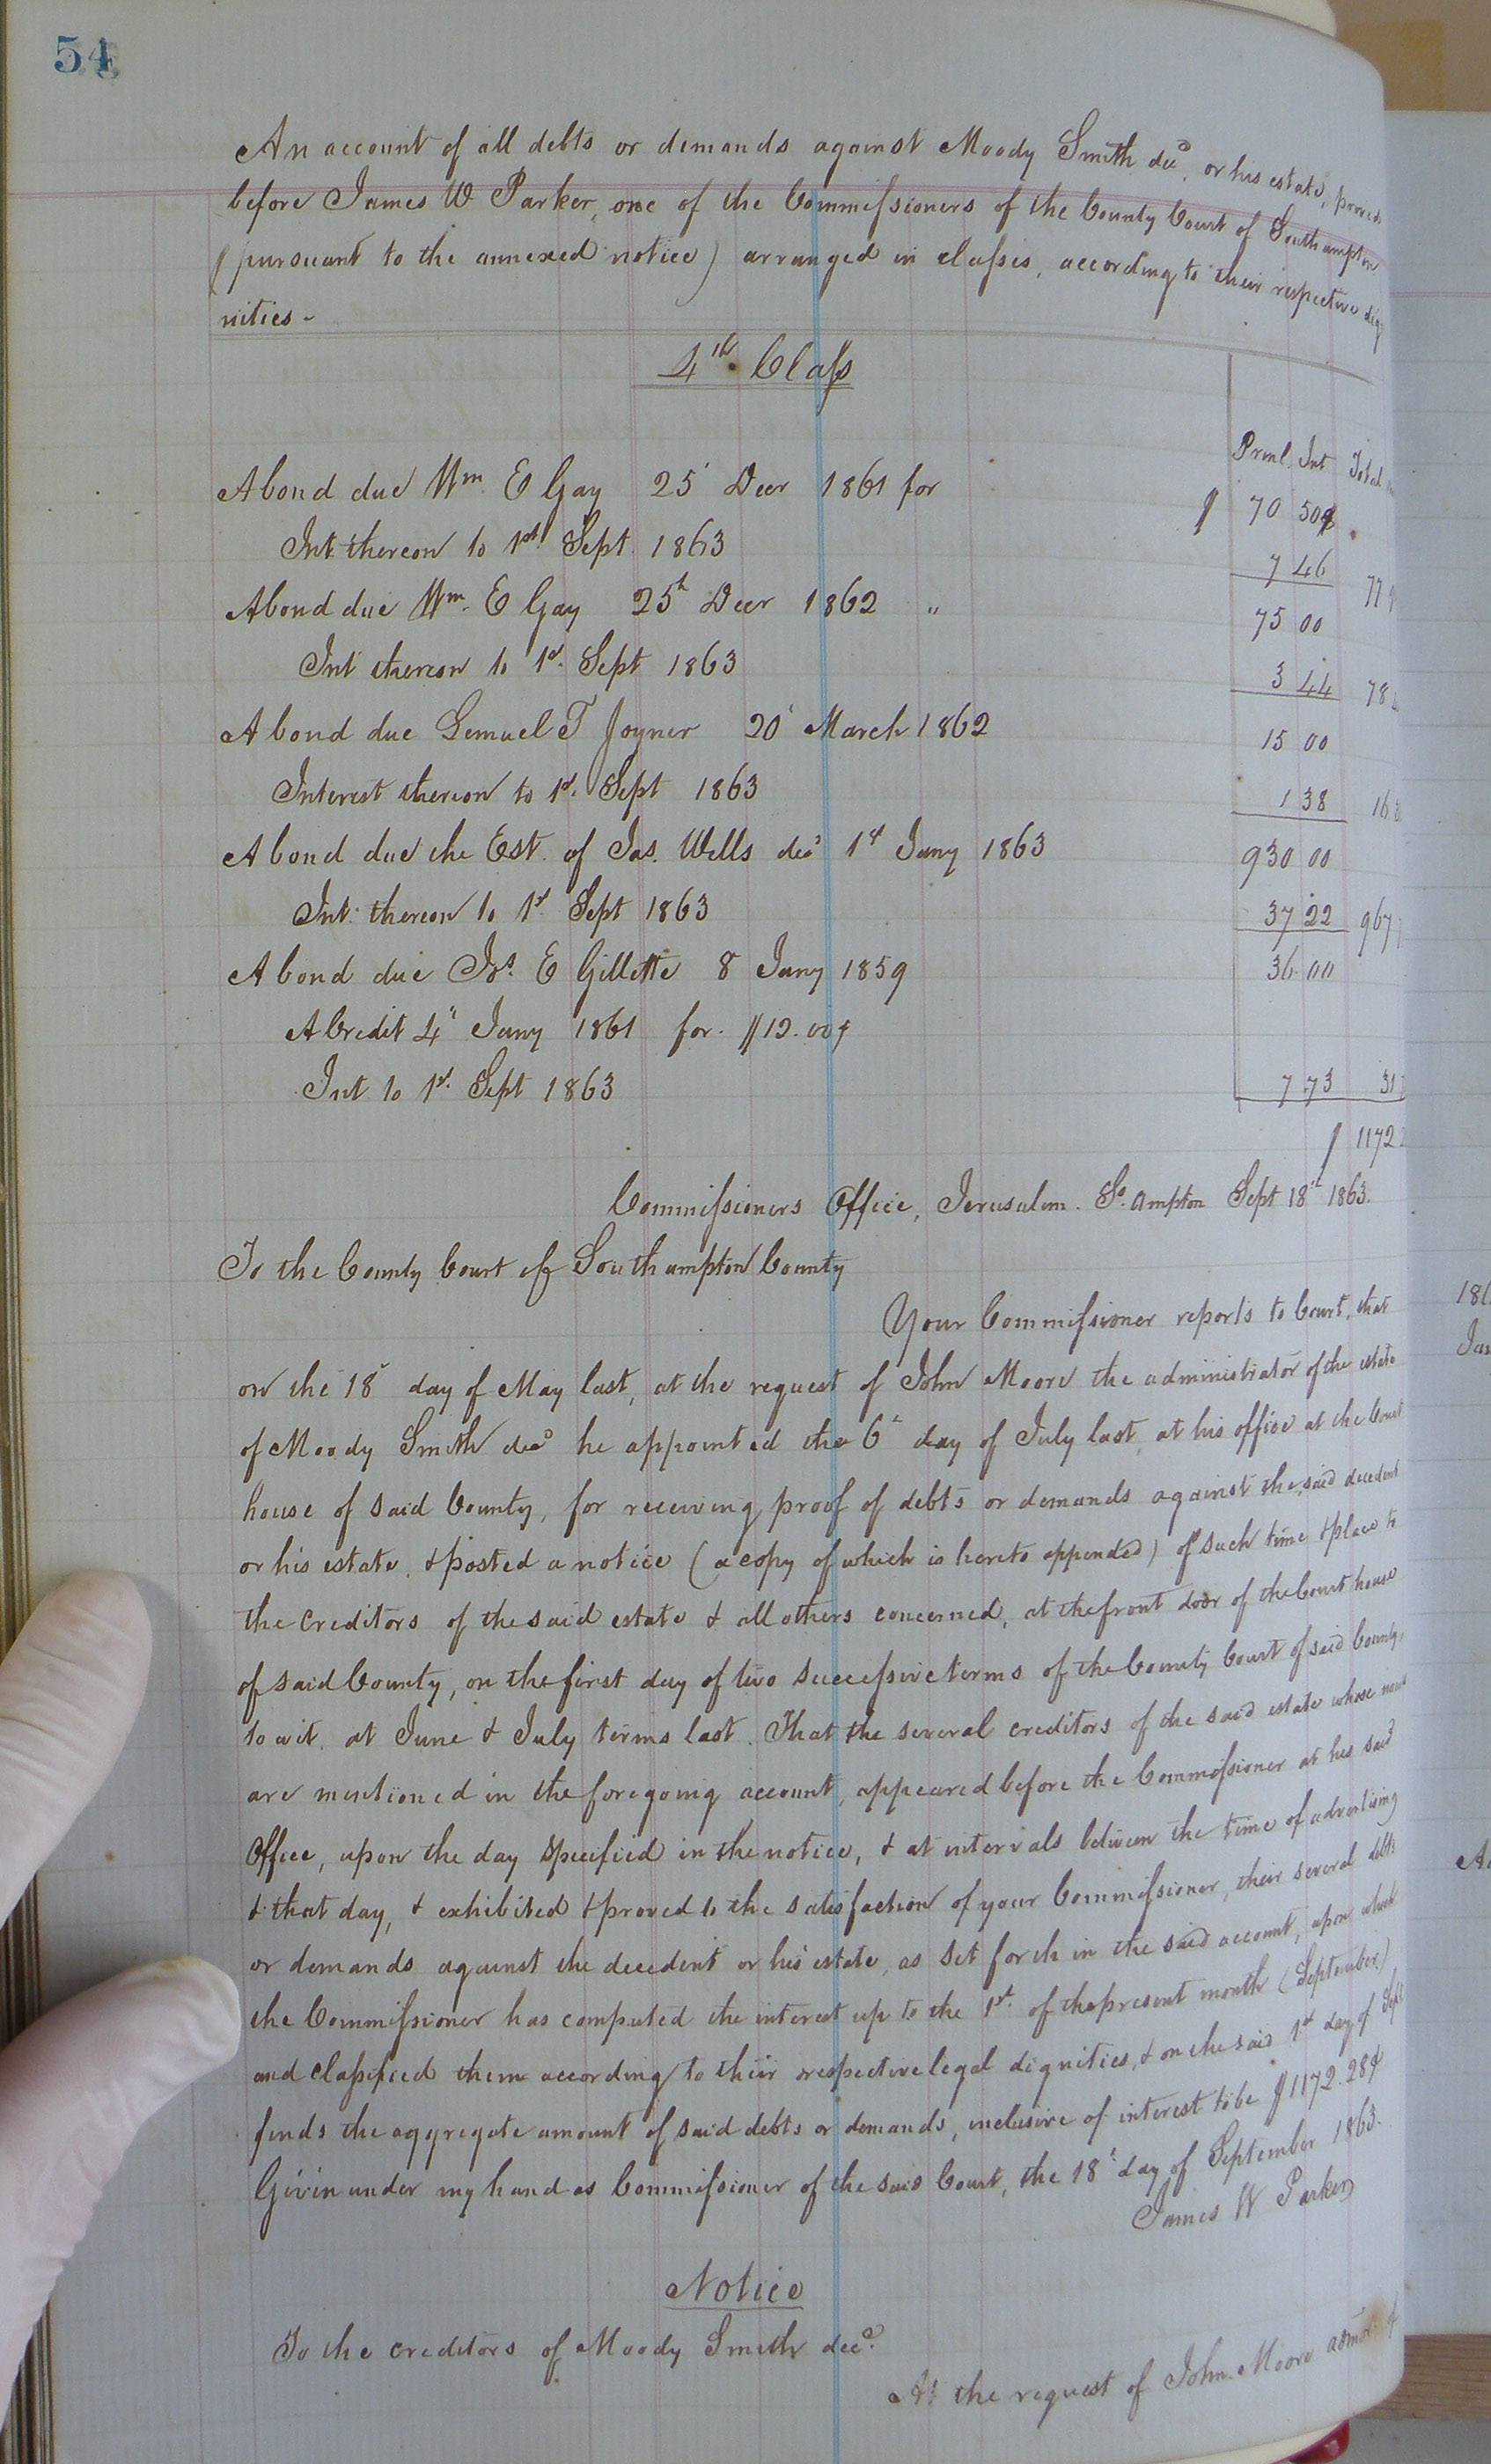 54
An account of all debts or demands against Moody Smith decd, or his estate, proved
before James W Parker, one of the Commissioners of the County Court of Southampton
(pursuant to the annexed notice) arranged in classes, according to their respective dig
nities -
4th Class
Prnl. Int Total
A bond due Wm. E Gay 25' Decr 1861 for $ 70 50¢
Int thereon to 1st Sept. 1863 7 46 77
A bond due Wm. E Gay 25th Decr 1862 " 75 00
Int thereon to 1st. Sept 1863 3 44 78
A bond due Lemuel T Joyner 20' March 1862 15 00
Interest thereon to 1st. Sept 1863 1 38 16
A bond due the Est. of Jas. Wells decd 1st Jany 1863 930 00
Int: thereon to 1st. Sept 1863 37 22 967
A bond due E Gillette 8 Jany 1859 36 00
A Credit 4" Jany 1861 for. $12.00¢
Int to 1st. Sept 1863 7 73 31
$ 1172
Commissioners Office, Jerusalem. So. ampton Sept 18th 1863.
To the County Court of Southampton County
Your Commissioner reports to Court, that
on the 18' day of May last, at the request of John Moore the administrator of the estate
of Moody Smith decd he appointed the 6" day of July last, at his office at the Court
house of said County, for receiving proof of debts or demands against the said decedent
or his estate, & posted a notice (a copy of which is hereto appended) of such time & place to
the creditors of the said estate & all others concerned, at the front door of the Court house
of said County, on the first day of two successive terms of the County Court of said County,
to wit. at June & July terms last. That the several creditors of the said estate whose names
are mentioned in the foregoing account, appeared before the Commissioner at his said
Office, upon the day specified in the notice, & at intervals between the time of advertising
& that day, & exhibited & proved to the satisfaction of your Commissioner, their several debts
or demands against the decedent or his estate, as set forth in the said account, upon which
the Commissioner has computed the interest up to the 1st. of the present month (September)
and classified them according to their respective legal dignities, & on the said 1st day of Sept
finds the aggregate amount of said debts or demands, inclusive of interest to be $1172.28¢
Given under my hand as Commissioner of the said Court, the 18' day of September 1863.
James W Parker
Notice
To the creditors of Moody Smith decd.
At the request of John Moore admor. of